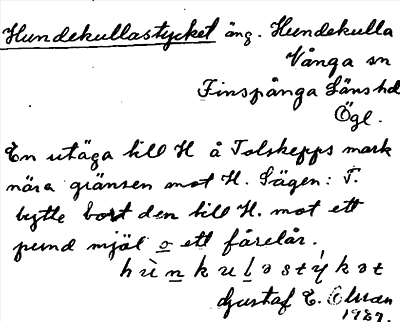 Hundekullastycket äng. Hundekulla
Vånga sn
Finspånga Länshd
Ögl.
En utäga till H å Tolskepps mark
nära gränsen mot H. Sägen: T.
bytte bort den till H. mot ett
pund mjöl o ett fårelår.
hùnkuləstýkət
Gustaf E.